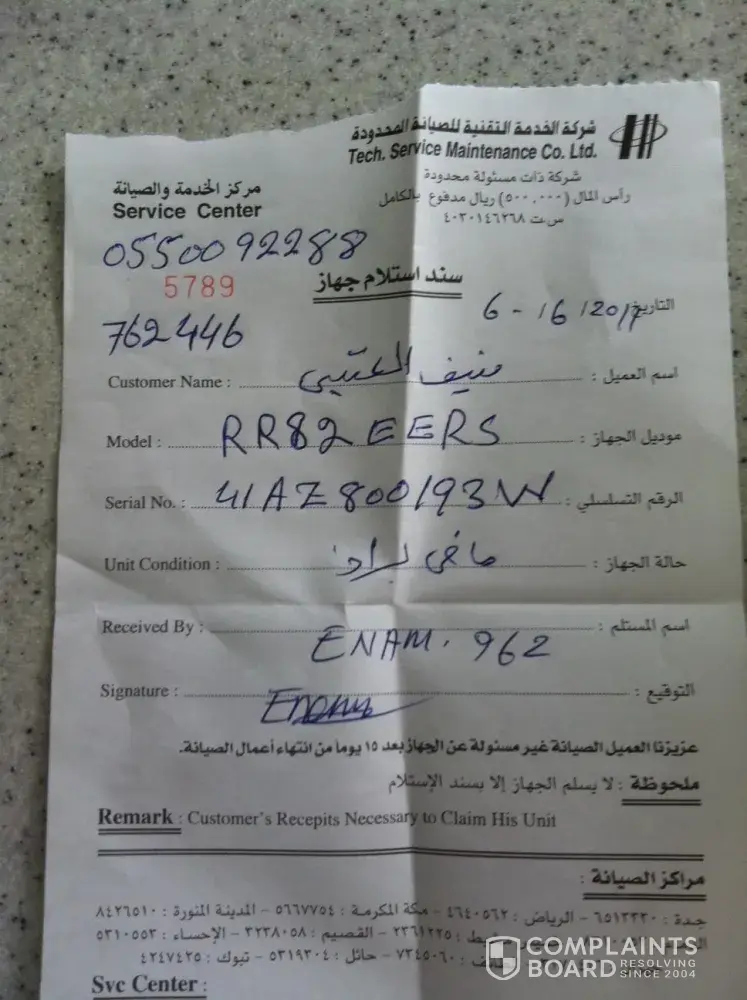 شركة الخدمة التقنية للصيانة المحدودة
Tech. Service Maintenance Co. Ltd.
شركة ذات مسئولة محدودة
رأس المال (٥٠٠,٠٠٠) ريال مدفوع بالكامل
س.ت ٤٠٣٠١٤٦٢٦٨
مركز الخدمة والصيانة
Service Center
0550092288
5789
سند استلام جهاز
762446
التاريخ 6-16/2017
Customer Name : منيف العتيبي اسم العميل :
Model : RR82EERS موديل الجهاز :
Serial No. : 41AZ800193W الرقم التسلسلي :
Unit Condition : مافى براد حالة الجهاز :
Received By : ENAM. 962 اسم المستلم :
Signature : Enam التوقيع :
عزيزنا العميل الصيانة غير مسئولة عن الجهاز بعد ١٥ يوماً من انتهاء أعمال الصيانة.
ملحوظة : لا يسلم الجهاز إلا بسند الإستلام
Remark : Customer's Recepits Necessary to Claim His Unit
مراكز الصيانة :
جدة : ٦٥١٣٣٣٠ - الرياض : ٤٦٤٠٥٦٢ - مكة المكرمة : ٥٦٦٧٧٥٤ - المدينة المنورة : ٨٤٢٦٥١٠
٢٣٦١٢٢٥ - القصيم : ٣٢٣٨٠٥٨ - الإحساء : ٥٣١٠٥٥٣
٧٣٤٥٠٦٠ - حائل : ٥٣١٩٣٠٤ - تبوك : ٤٢٤٧٤٢٥
Svc Center :
COMPLAINTS
BOARD RESOLVING SINCE 2004